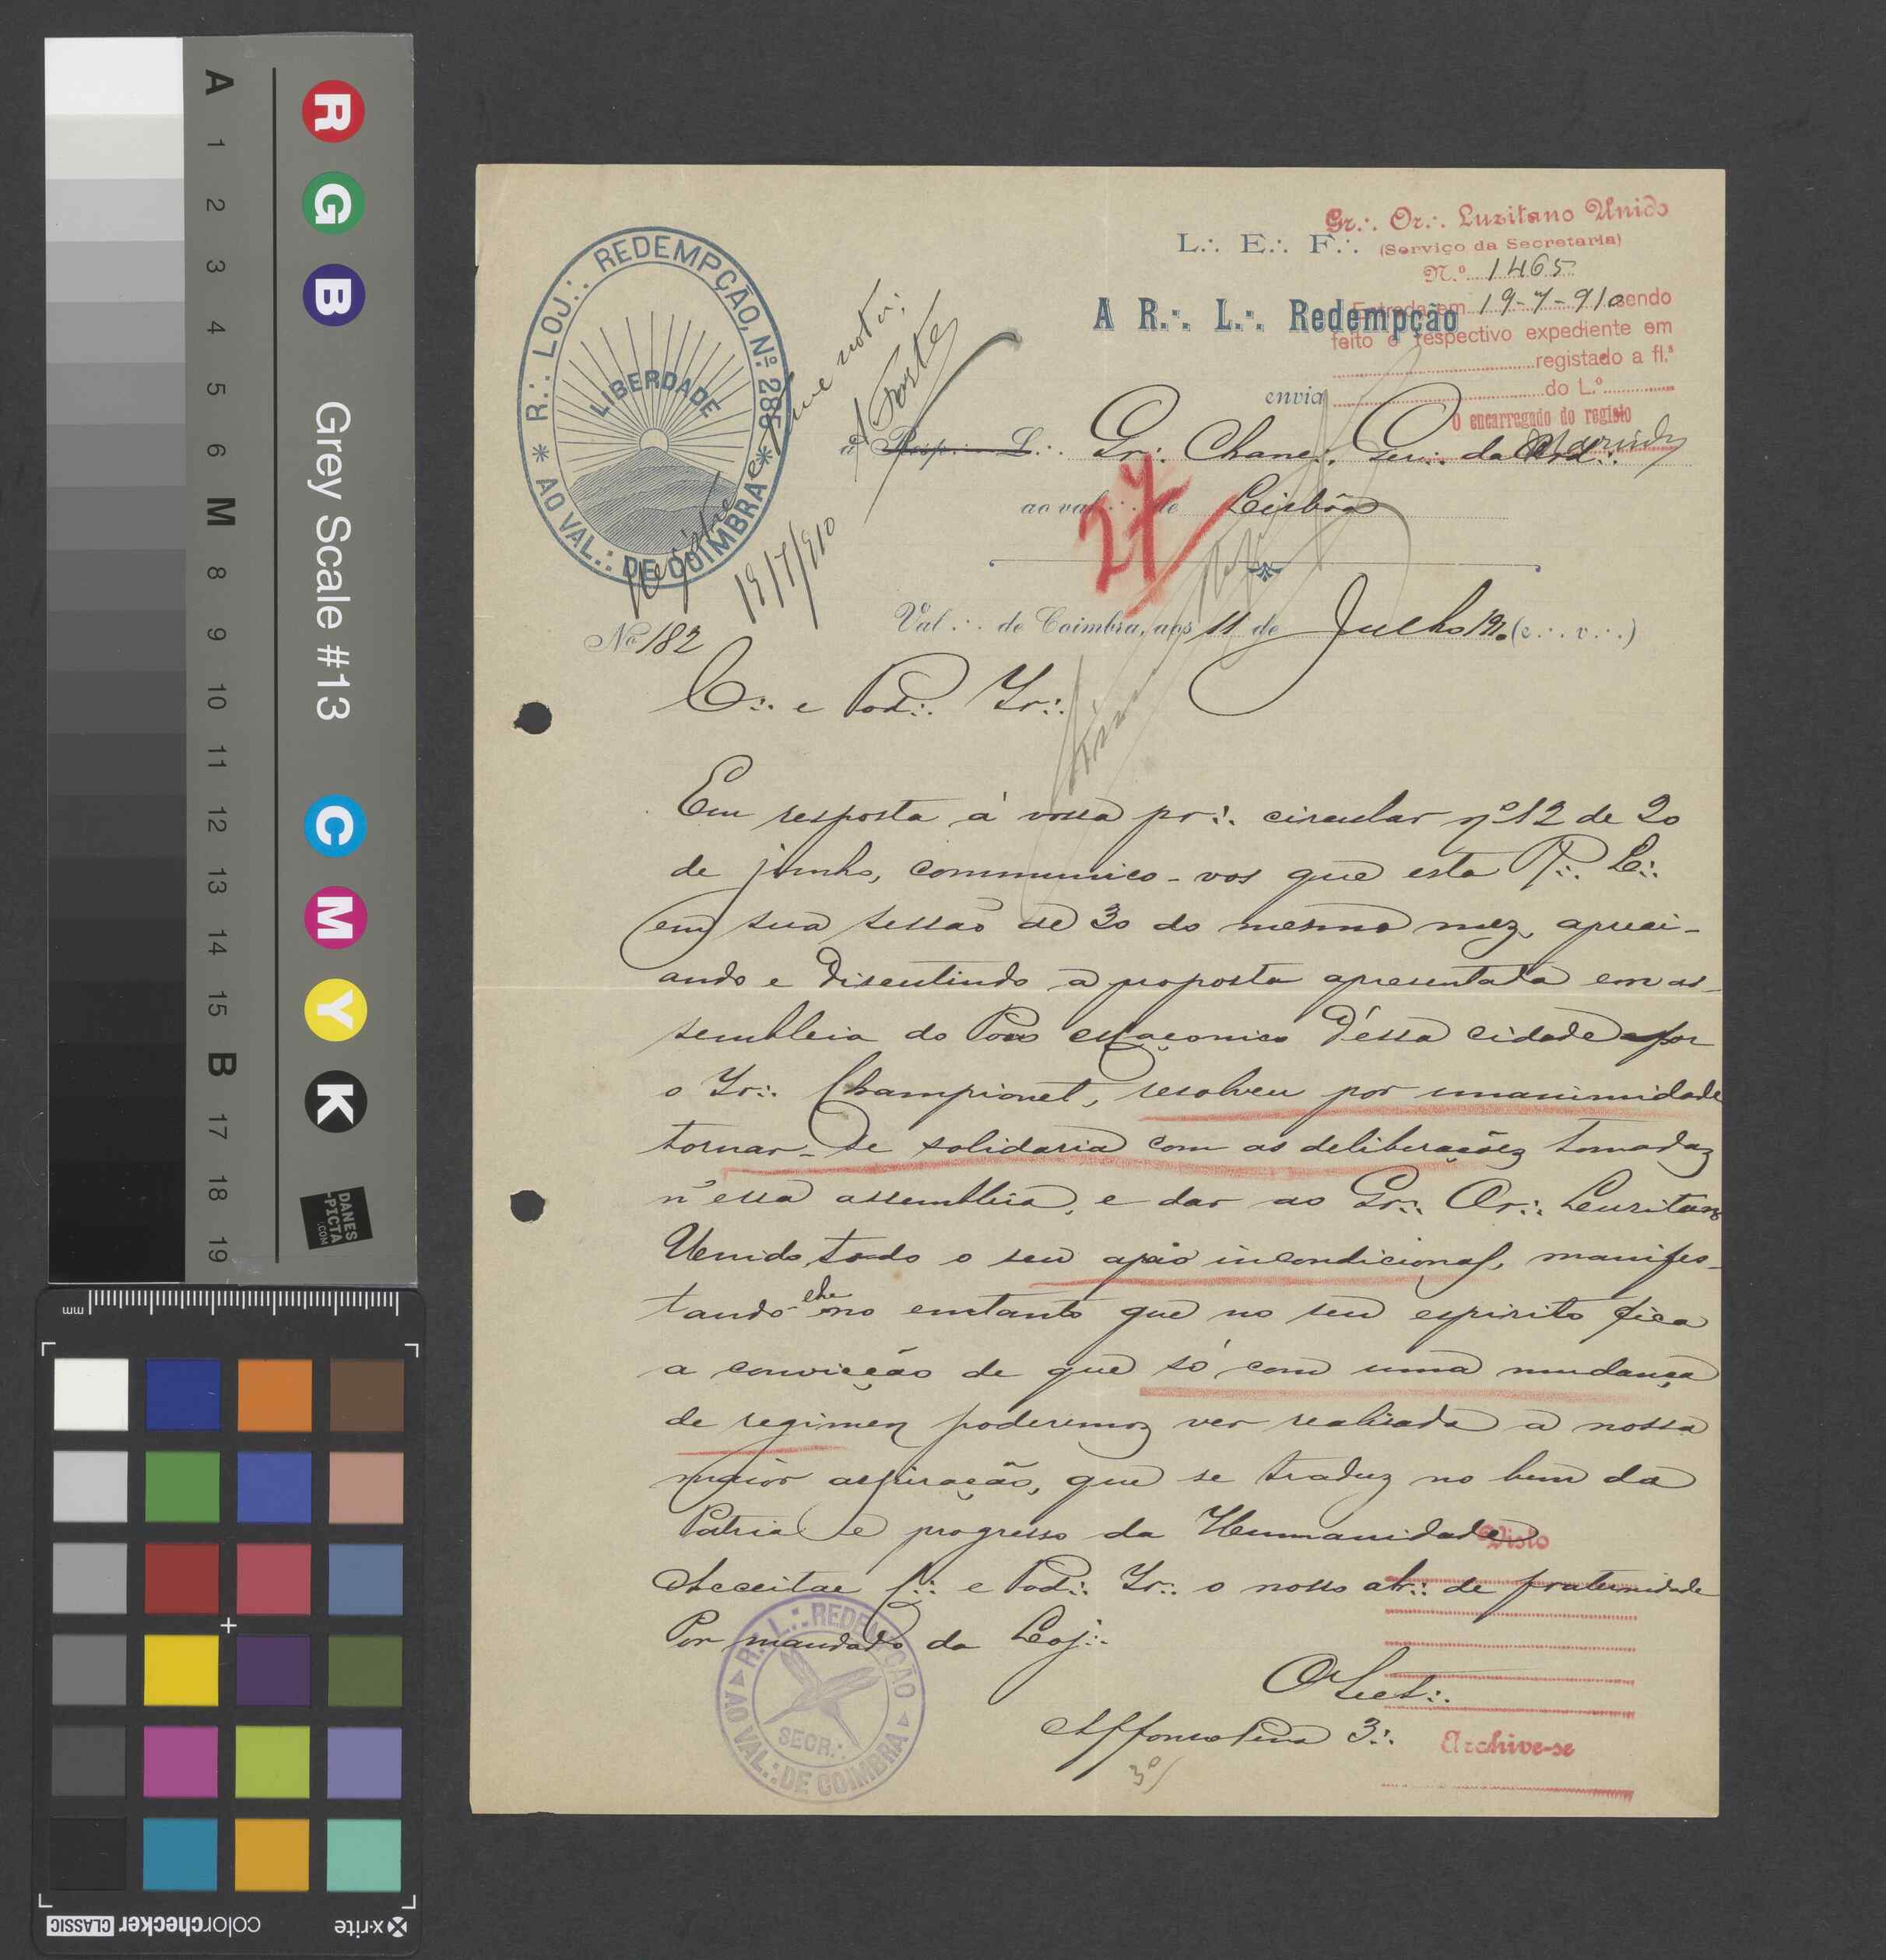 R∴ LOJ∴ REDEMPÇÃO, Nº 285
AO VAL∴ DE COIMBRA
LIBERDADE
Gr∴ Or∴ Luzitano Unido
L∴ E∴ F∴
(Serviço da Secretaria)
N.º 1465
Entrada em 19-7-910 sendo
A R∴ L∴ Redempção
feito o respectivo expediente em
registado a fl.ª
do L.º
envia
O encarregado do registo
á Resp∴ L∴ Gr∴ Chanc∴ Ger∴ da Ord∴
ao val∴ de Lisbôa
27
Registre e me note;
19/7/910
Val∴ de Coimbra, aos 11 de Julho 1910 (e∴ v∴)
Nº 182
C∴ e Pod∴ Ir∴
Em resposta á vossa pr∴ circular nº 12 de 20
de junho, communico-vos que esta R∴ L∴
em sua sessão de 30 do mesmo mez, apreci-
ando e discutindo a proposta apresentada em as-
sembleia do Povo Maçonico d'essa cidade por
o Ir∴ Championet, resolveu por unanimidade
tornar-se solidaria com as deliberações tomadas
n'essa assembleia, e dar ao Gr∴ Or∴ Luzitano
Unido, todo o seu apoio incondicional, manifes-
tando-lhe no emtanto que no seu espirito fica
a convicção de que só com uma mudança
de regimen poderemos ver realisada a nossa
maior aspiração, que se traduz no bem da
Patria e progresso da Humanidade
Visto
Acceitae C∴ e Pod∴ Ir∴ o nosso abr∴ de fraternidade
Por mandado da Loj∴
R∴ L∴ REDEMPÇÃO
AO VAL∴ DE COIMBRA
SECR∴
O Secr∴
Affonso Pena 3∴
Archive-se
3º
A 1 2 3 4 5 6 M 8 9 10 11 12 13 14 15 B 17 18 19
R G B Grey Scale #13 C M Y K
DANES
-PICTA
.COM
mm
x·rite
colorchecker CLASSIC